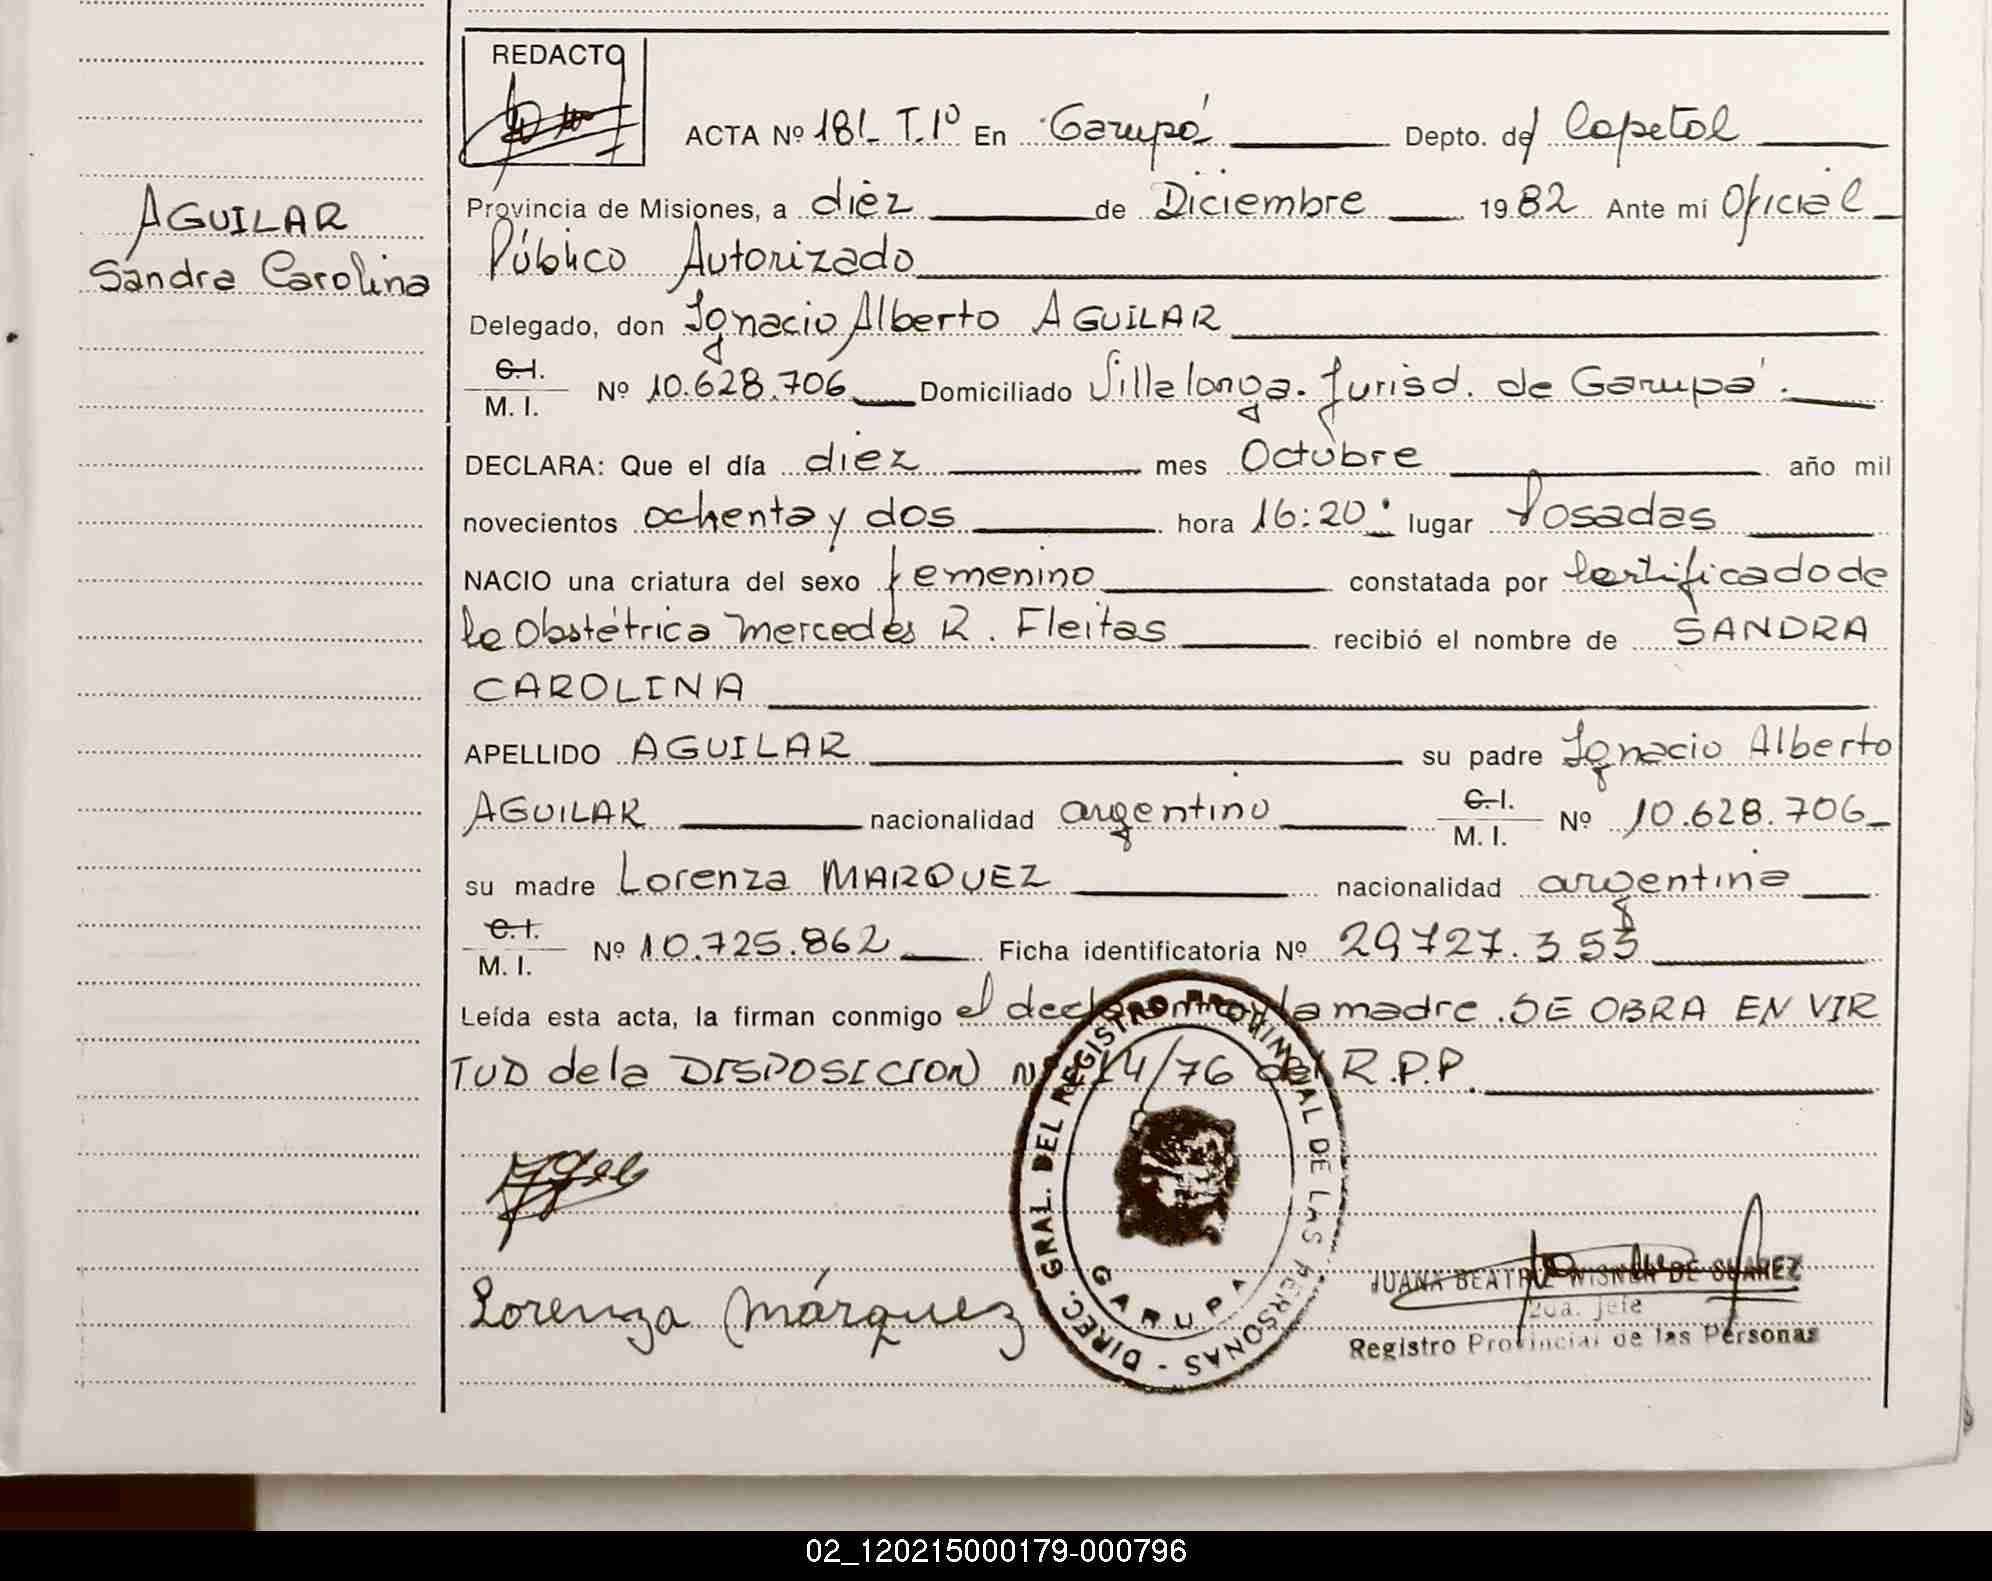 REDACTO
ACTA Nº 181_ T.1º En Garupá Depto. de Capital
Provincia de Misiones, a diez de Diciembre 1982 Ante mí Oficial
Público Autorizado
AGUILAR
Sandra Carolina
Delegado, don Ignacio Alberto AGUILAR
C.I.
M. I. Nº 10.628.706 Domiciliado Villalonga. Jurisd. de Garupá.
DECLARA: Que el día diez mes Octubre año mil
novecientos ochenta y dos hora 16:20 lugar Posadas
NACIO una criatura del sexo femenino constatada por certificado de
la Obstétrica Mercedes R. Fleitas recibió el nombre de SANDRA
CAROLINA
APELLIDO AGUILAR su padre Ignacio Alberto
AGUILAR nacionalidad argentino C.I. M. I. Nº 10.628.706
su madre Lorenza MARQUEZ nacionalidad argentina
C.I.
M. I. Nº 10.725.862 Ficha identificatoria Nº 29727.353
Leída esta acta, la firman conmigo el declarante y la madre. SE OBRA EN VIR
TUD de la DISPOSICION Nº 14/76 del R.P.P.
DIREC. GRAL. DEL REGISTRO PROVINCIAL DE LAS PERSONAS -
GARUPA
Lorenza Márquez
JUANA BEATRIZ WISNER DE SUAREZ
2da. jefe
Registro Provincial de las Personas
02_120215000179-000796